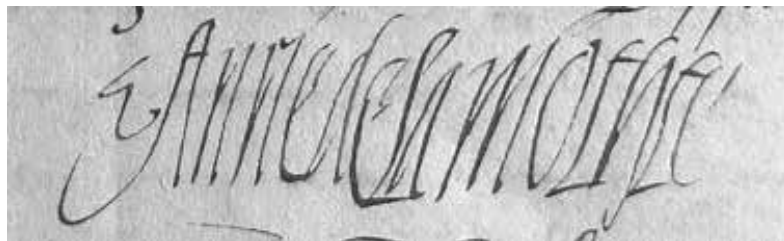 Anne de la mothe